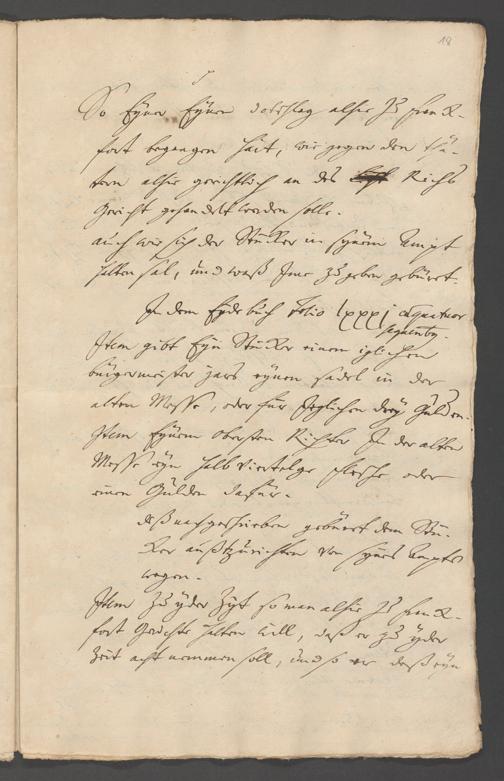 18
So Eyner Eynen dotschlag alhie zu Franck-
fort begangen hait, wie gegen den thä-
tern alhie gerichtlich an des Reichs
Gericht gehandelt werden solle.
auch wie sich der Stöcker in synem Ampt
halten sal, und waß Jme zu geben gebüert.
Jn dem Eydebuch Folio lxxxj et quatuor
sequentibus.
Jtem gibt Eyn Stöcker einem iglichen
bürgermeister Jars eynen sadel in der
alten Messe, oder für Jeglichen drey Gülden.
Jtem Eynem obersten Richter Jn der alten
Messe eyn halb viertelge flesche oder
einen Gülden dafür.
deß nachgeschrieben gebüert dem Stö-
cker außzurichten von synes Ampts
wegen.
Jtem zu yder Zyt so man alhie zu Franck-
fort Gerichte halten will, daß er zu yder
Zeit acht nemmen soll, und so er daß eyn